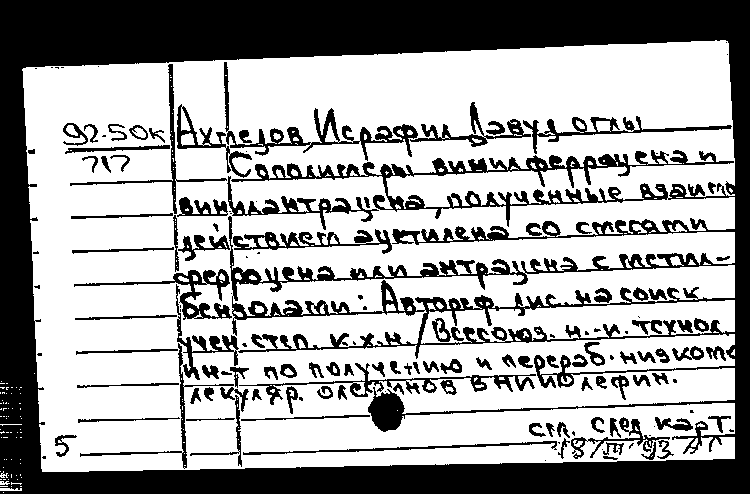 92-50к
717
Ахмедов, Исрафил Давуд оглы
Сополимеры винилферроцена и
винилантрацена, полученные взаимо
действием ацетилена со смесями
ферроцена или антрацена с метил-
бензолами: Автореф. дис. на соиск.
учен. степ. к.х.н. / Всесоюз. н.-и. технол.
ин-т по получению и перераб. низкомо
лекуляр. олефинов ВНИИОлефин.
см. след. карт.
5
18/III 93